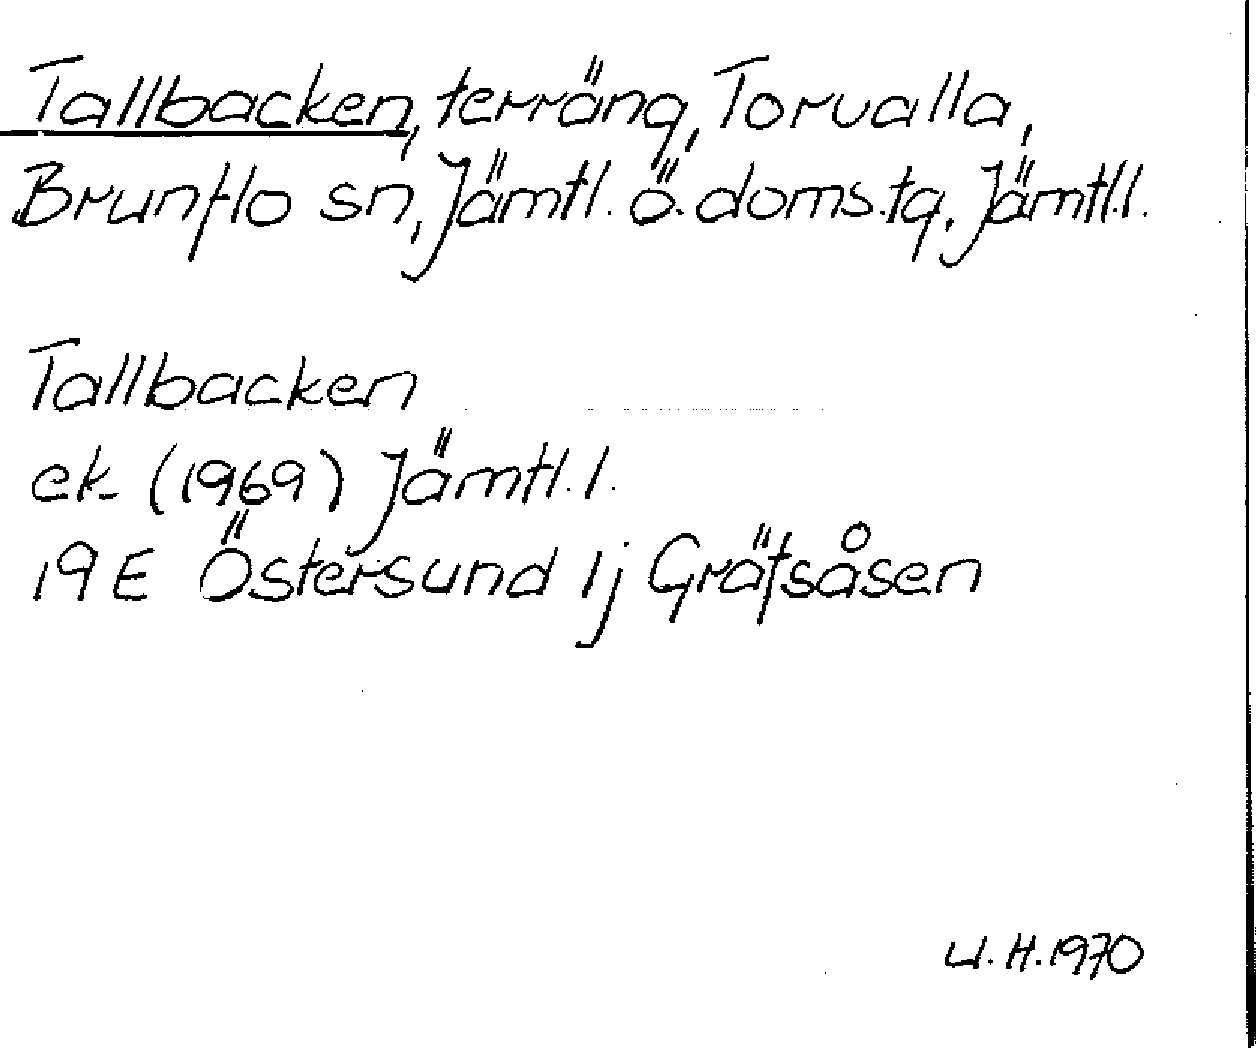 Tallbacken, terräng, Torvalla,
Brunflo sn, Jämtl. ö. doms.tg. Jämtl.l.
Tallbacken
ek (1969) Jämtl.l.
19E Östersund 1j Gräfsåsen
U.H.1970